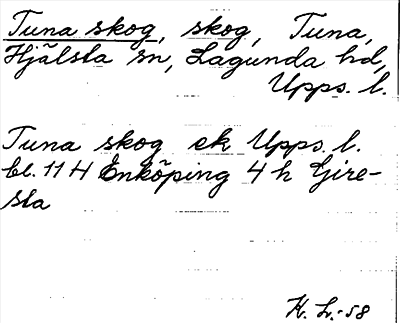 Tuna skog, skog, Tuna,
Hjälsta sn, Lagunda hd,
Upps. l.
Tuna skog ek Upps. l.
bl. 11 H Enköping 4 h Gire-
sta
H. L.-58